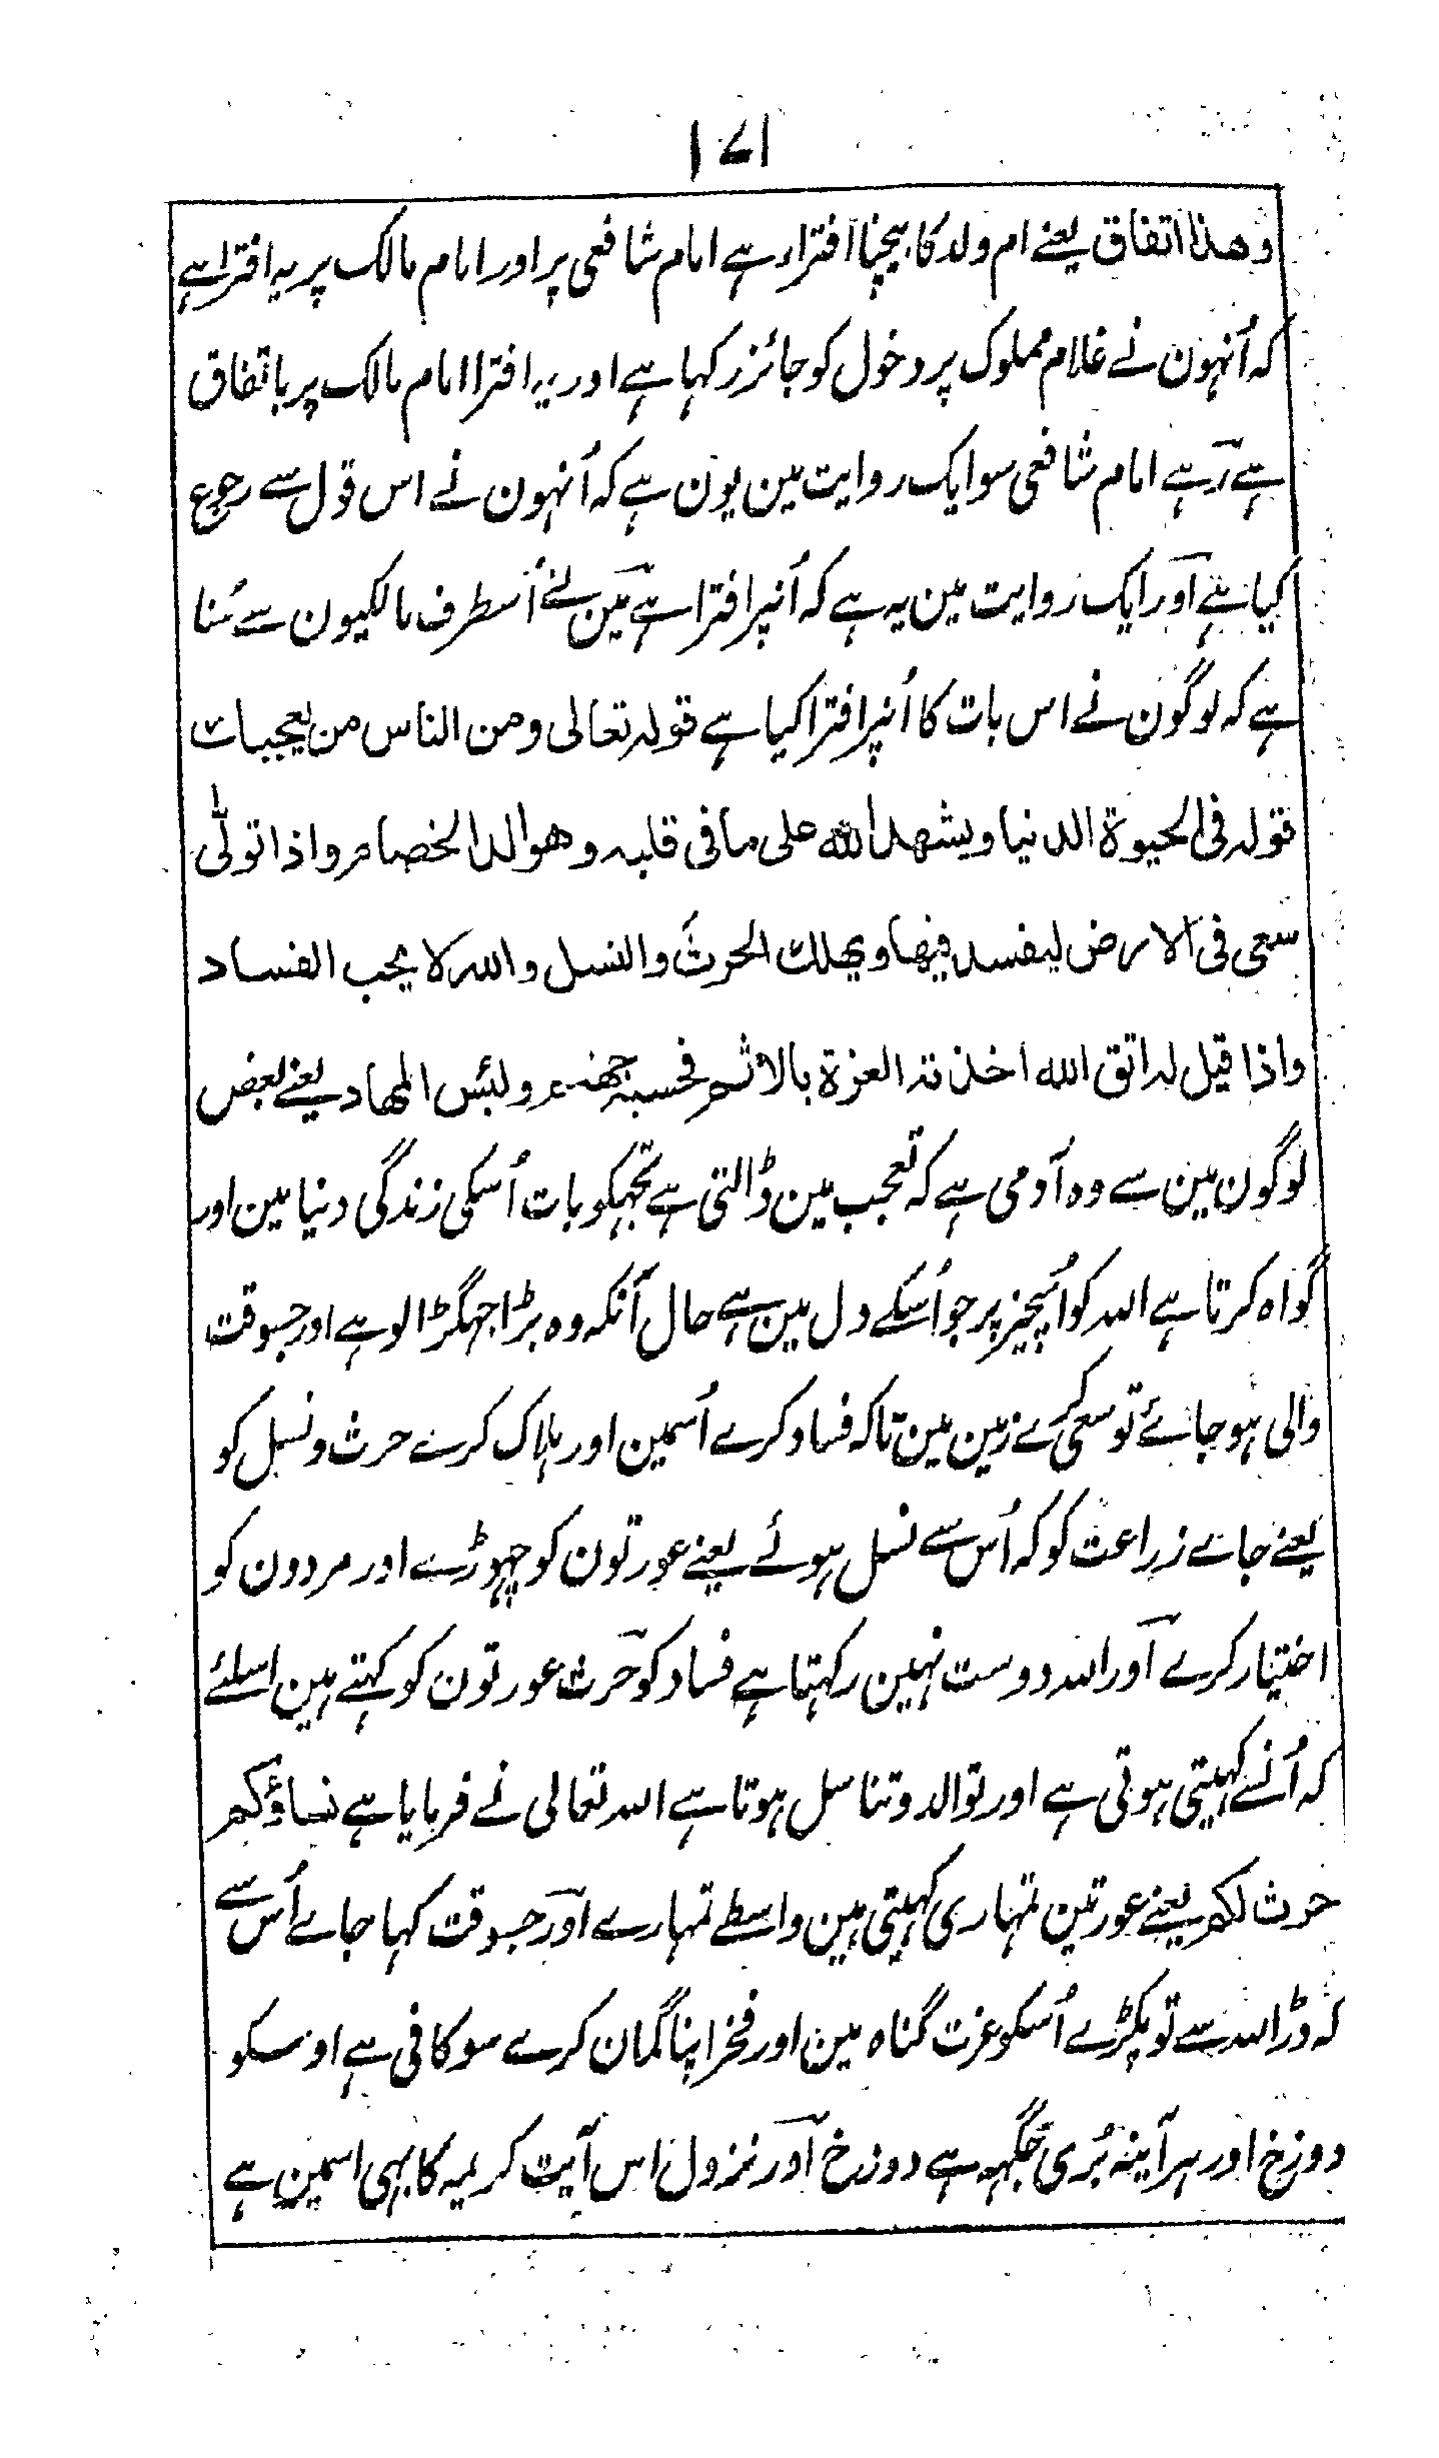 ۱۷۱
وھذا اتفاق یعنے ام ولد کا بیچنا افتراء ہے امام شافعی پر اور امام مالک پر یہ افترا ہے
کہ اُنہون نے غلام مملوک پر دخول کو جائز رکہا ہے اور یہ افترا امام مالک پر باتفاق
ہے رہے امام شافعی سو ایک روایت مین یون ہے کہ اُنہون نے اس قول سے رجوع
کیا ہے اور ایک روایت مین یہ ہے کہ اُنپر افترا ہے مین نے اُسطرف مالکیون سے سُنا
ہے کہ لوگون نے اس بات کا اُنپر افترا کیا ہے قولہ تعالی ومن الناس من یعجبك
قولہ فی الحیوۃ الدنیا ویشھد اللہ علی ما فی قلبہ وھو الد الخصام واذا تولّٰی
سعی فی الارض لیفسد فیھا ویھلك الحرث والنسل واللہ لا یحب الفساد
واذا قیل لہ اتق اللہ اخذتہ العزۃ بالاثم فحسبہ جھنم ولبئس المھاد یعنے بعض
لوگون مین سے وہ آدمی ہے کہ تعجب مین ڈالتی ہے تجہکو بات اُسکی زندگی دنیا مین اور
گواہ کرتا ہے اللہ کو اُسچیز پر جو اُسکے دل مین ہے حال آنکہ وہ بڑا جہگڑالو ہے اور جسوقت
والی ہو جائے تو سعی کرے زمین مین تاکہ فساد کرے اُسمین اور ہلاک کرے حرث و نسل کو
یعنے جاے زراعت کو کہ اُس سے نسل ہوئے یعنے عورتون کو چہوڑے اور مردون کو
اختیار کرے اور اللہ دوست نہین رکہتا ہے فساد کو حرث عورتون کو کہتے ہین اسلئے
کہ اُنسے کہیتی ہوتی ہے اور توالد و تناسل ہوتا ہے اللہ تعالی نے فرمایا ہے نساؤکم
حرث لکم یعنے عورتین تمہاری کہیتی ہین واسطے تمہارے اور جسوقت کہا جاے اُس سے
کہ ڈر اللہ سے تو پکڑے اُسکو عزت گناہ مین اور فخر اپنا گمان کرے سو کافی ہے اوسکو
دوزخ اور ہر آینہ بُری جگہہ ہے دوزخ اور نزول اس آیت کریمہ کا بہی اسمین ہے